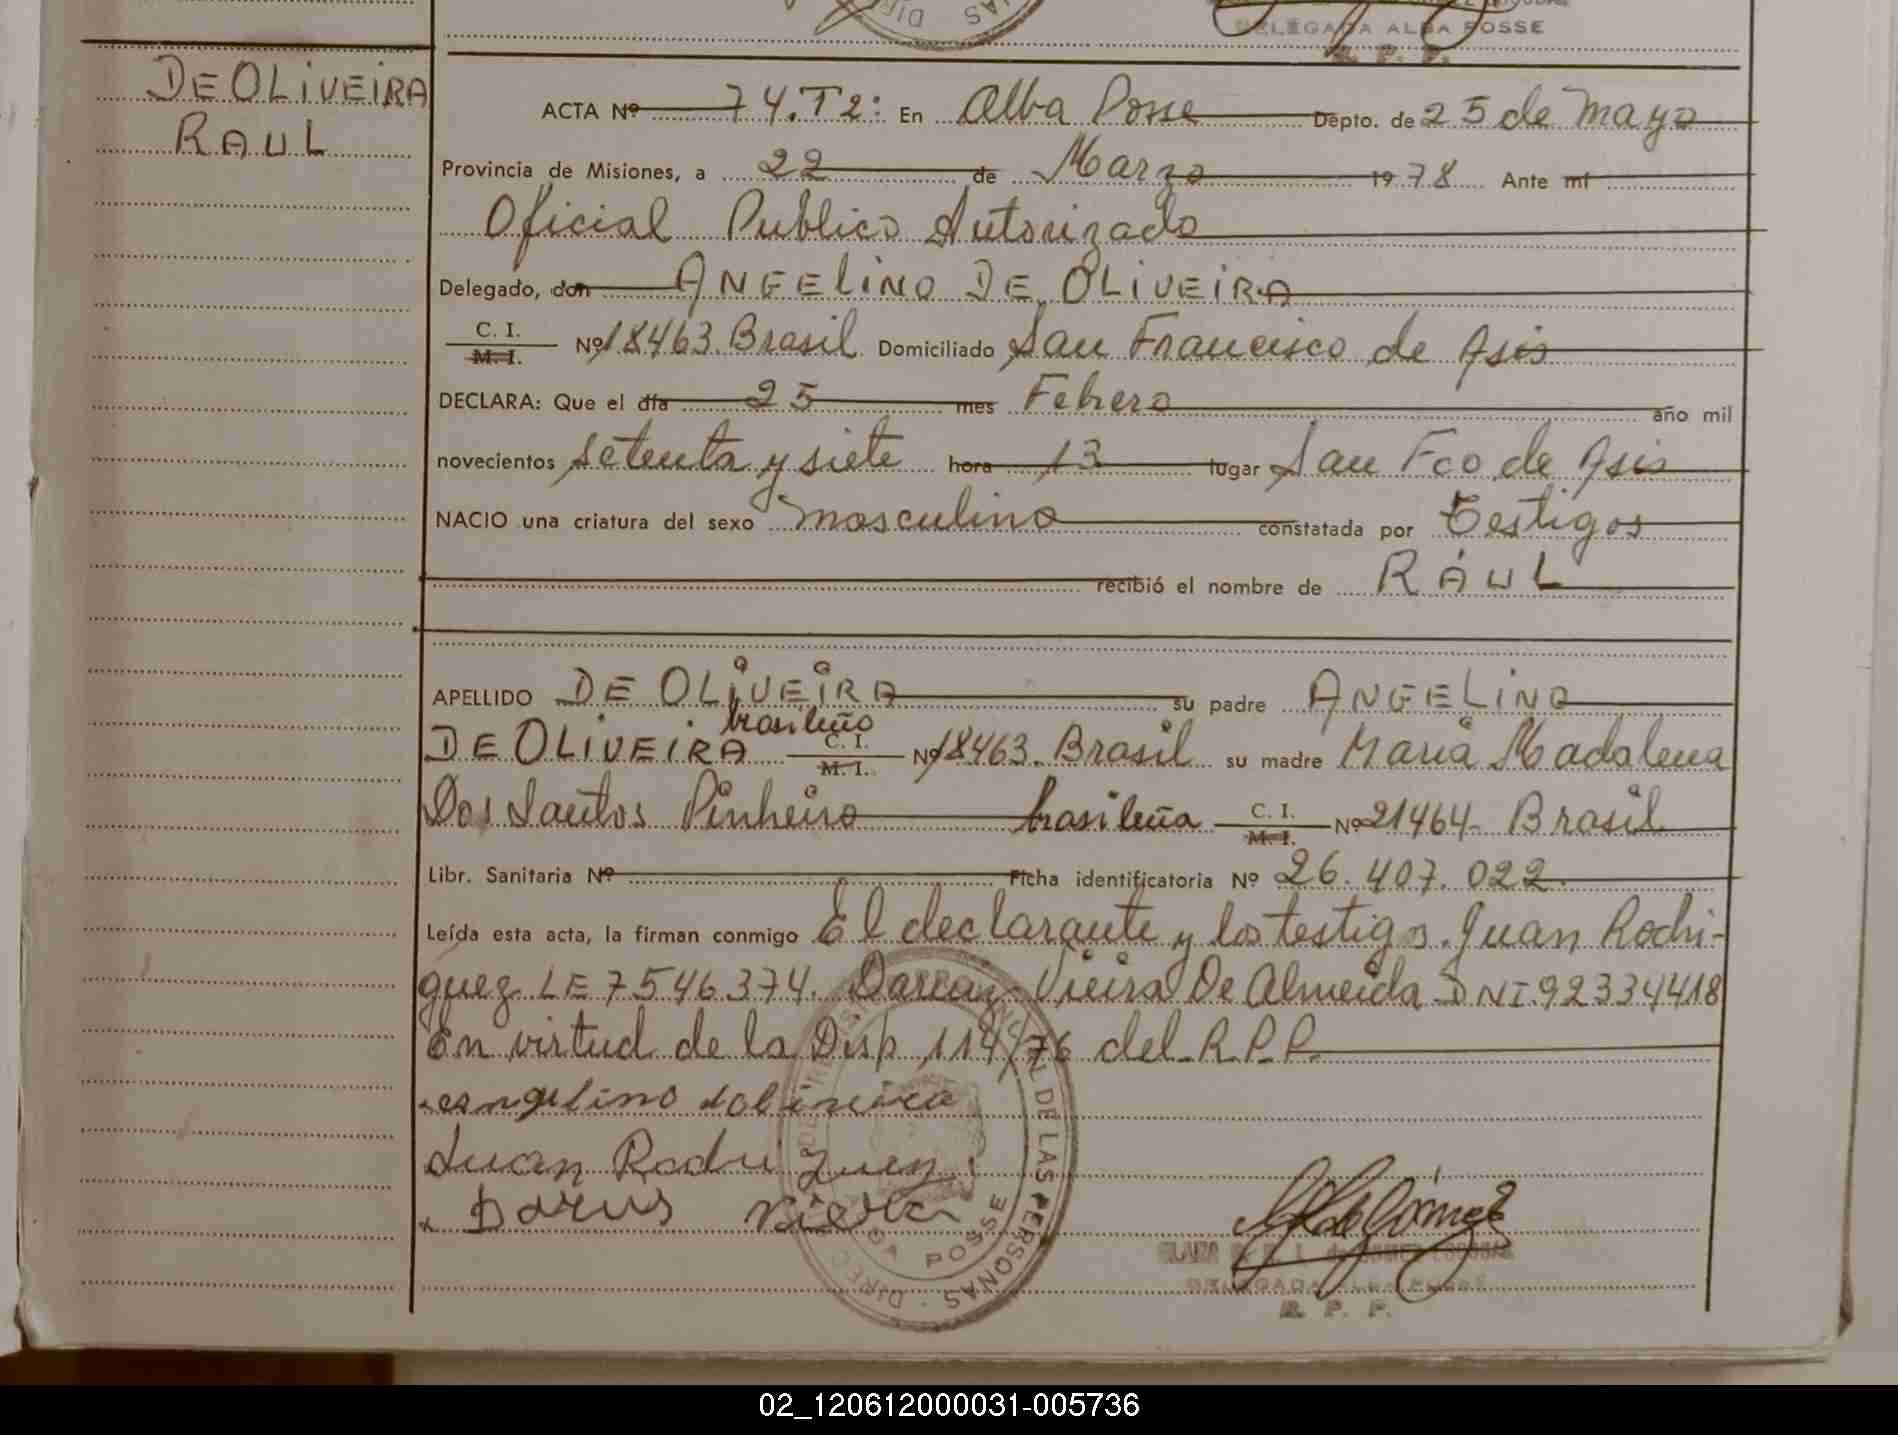 DELEGADA ALBA POSSE
R. P. P.
DE OLIVEIRA
RAUL
ACTA Nº 74. T2: En Alba Posse Depto. de 25 de Mayo
Provincia de Misiones, a 22 de Marzo 1978 Ante mí
Oficial Publico Autorizado
Delegado, don ANGELINO DE OLIVEIRA
C. I.
M. I. Nº 18463 Brasil Domiciliado San Francisco de Asis
DECLARA: Que el día 25 mes Febrero año mil
novecientos setenta y siete hora 13 lugar San Fco de Asis
NACIO una criatura del sexo masculino constatada por Testigos
recibió el nombre de RAUL
APELLIDO DE OLIVEIRA su padre ANGELINO
DE OLIVEIRA brasileño C. I. M. I. Nº 18463. Brasil su madre Maria Madalena
Dos Santos Pinheiro brasileña C. I. M. I. Nº 21464 Brasil
Libr. Sanitaria Nº Ficha identificatoria Nº 26.407.022
Leída esta acta, la firman conmigo El declarante y los testigos. Juan Rodri-
guez LE 7546374. Vieira De Almeida DNI 92334418
En virtud de la Disp 114/76 del R.P.P.
angelino doliveira
Juan Rodriguez
Vieira
DE LAS PERSONAS
ALBA POSSE
DELEGADA ALBA POSSE
R. P. P.
02_120612000031-005736